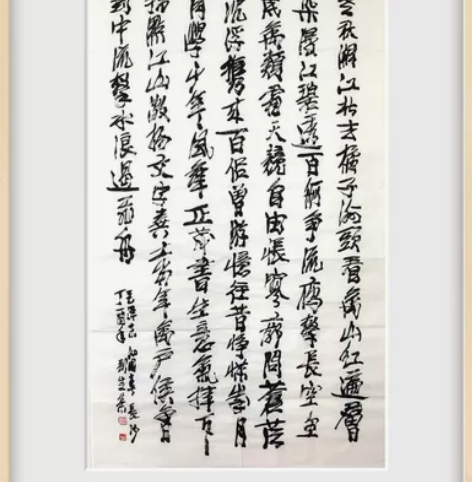 秋湘江北去橘子洲頭看萬山紅遍層
染漫江碧透百舸爭流鷹擊長空魚
底萬類霜天競自由悵寥廓問蒼茫
沉浮攜來百侶曾游憶往昔崢嶸歲月
同學少年風華正茂書生意氣揮斥
指點江山激揚文字糞土當年萬戶侯曾
到中流擊水浪遏飛舟
毛澤東沁園春長沙
丁酉年